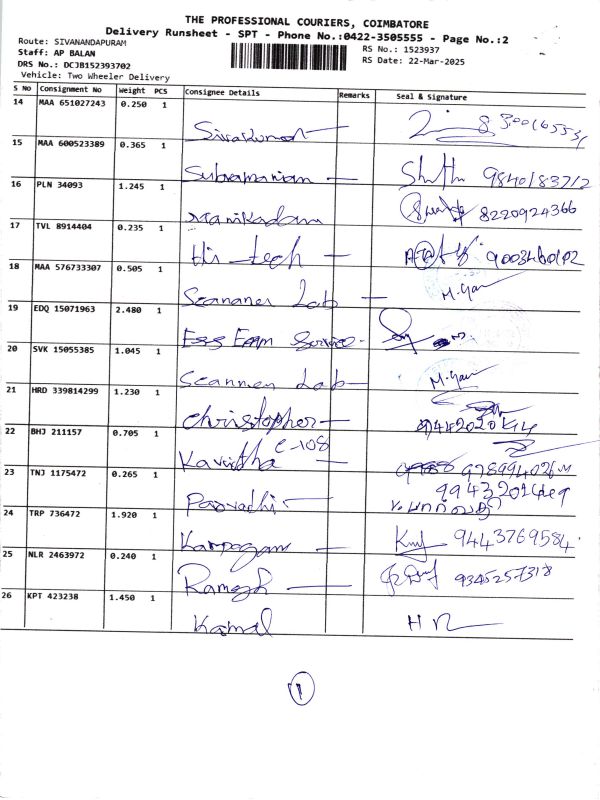 THE PROFESSIONAL COURIERS, COIMBATORE
Delivery Runsheet - SPT - Phone No.:0422-3505555 - Page No.:2
Route: SIVANANDAPURAM
RS No.: 1523937
Staff: AP BALAN
RS Date: 22-Mar-2025
DRS No.: DCJB152393702
Vehicle: Two Wheeler Delivery
S No Consignment No Weight PCS Consignee Details Remarks Seal & Signature
14 MAA 651027243 0.250 1
Sivakumar
15 MAA 600523389 0.365 1
Subramanian
16 PLN 34093 1.245 1
Manikadam 8220924366
17 TVL 8914404 0.235 1
Hi tech
18 MAA 576733307 0.505 1
Scananer Lab
19 EDQ 15071963 2.480 1
Ess Eam Service
20 SVK 15055385 1.045 1
Scanmen Lab
21 HRD 339814299 1.230 1
Christopher
22 BHJ 211157 0.705 1
Kavitha C-108
23 TNJ 1175472 0.265 1
Parvathi
24 TRP 736472 1.920 1
Karpagam 9443769584
25 NLR 2463972 0.240 1
Ramesh 9345257318
26 KPT 423238 1.450 1
Kamal
1